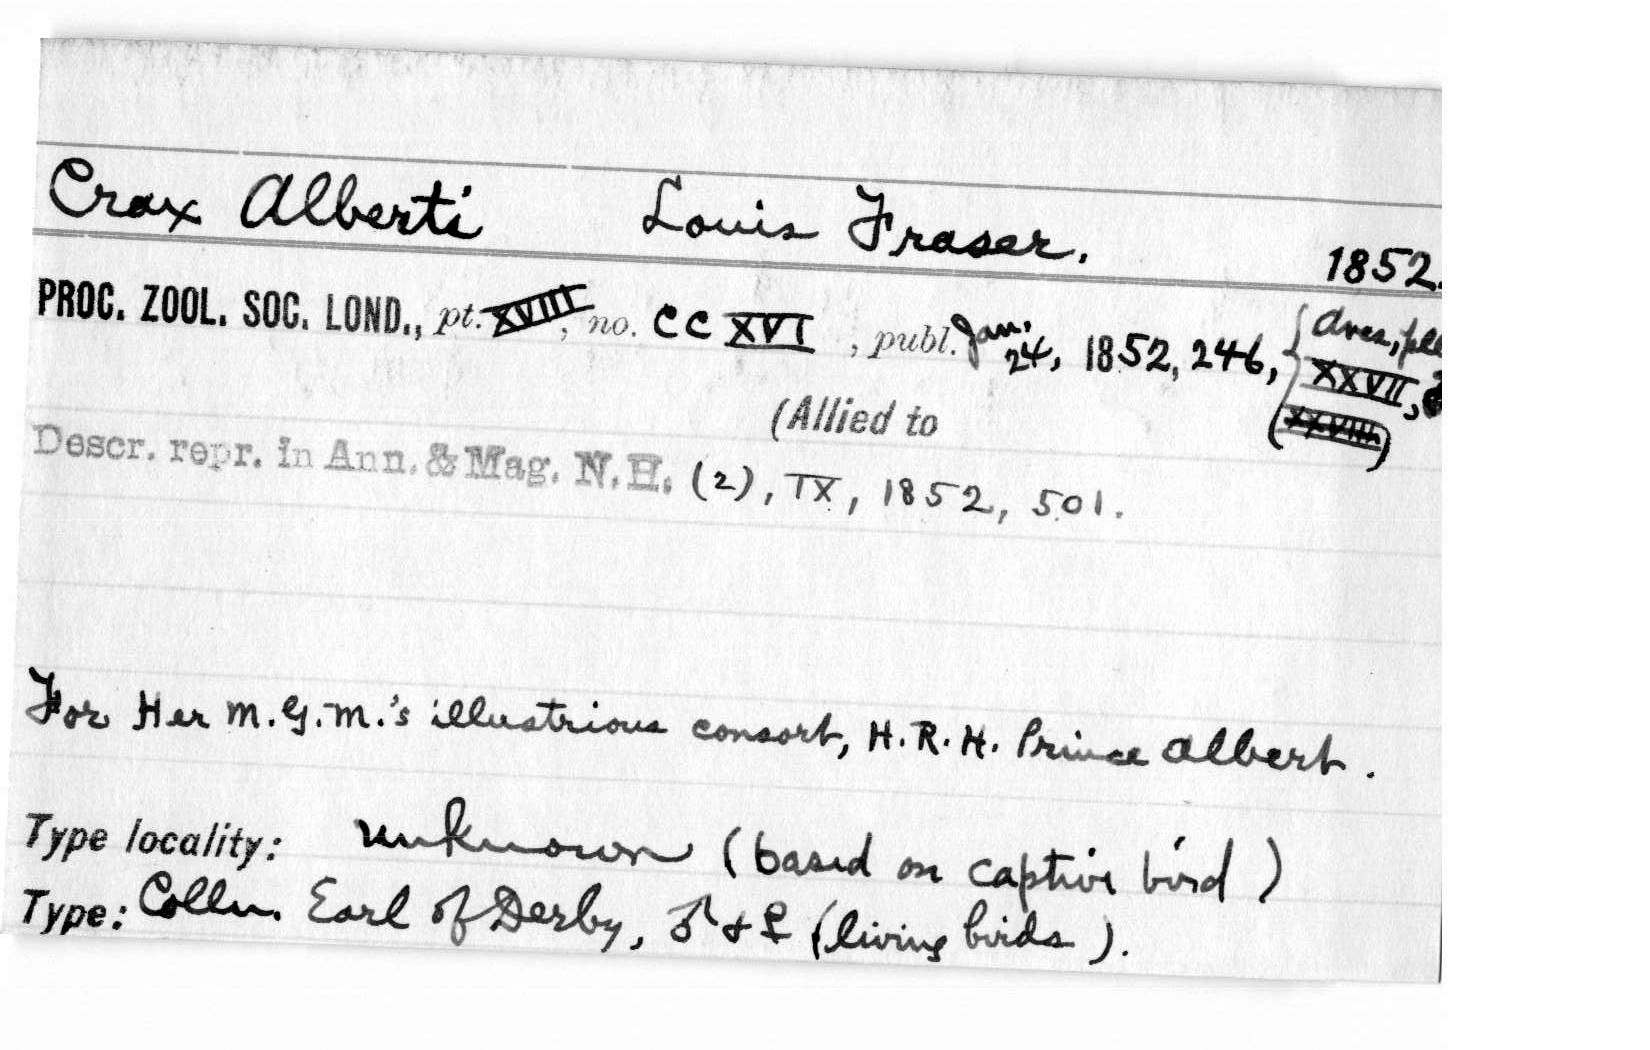 Crax Alberti Louis Fraser. 1852.
PROC. ZOOL. SOC. LOND., pt. XVIII, no. CCXVI, publ. Jan. 24, 1852, 246, {Aves, pll
XXVII,
(XXVIII)
(Allied to
Descr. repr. in Ann. & Mag. N.H. (2), IX, 1852, 501.
For Her M.G.M.'s illustrious consort, H.R.H. Prince Albert.
Type locality: unknown (based on captive bird)
Type: Colln. Earl of Derby, ♂ + ♀ (living birds).